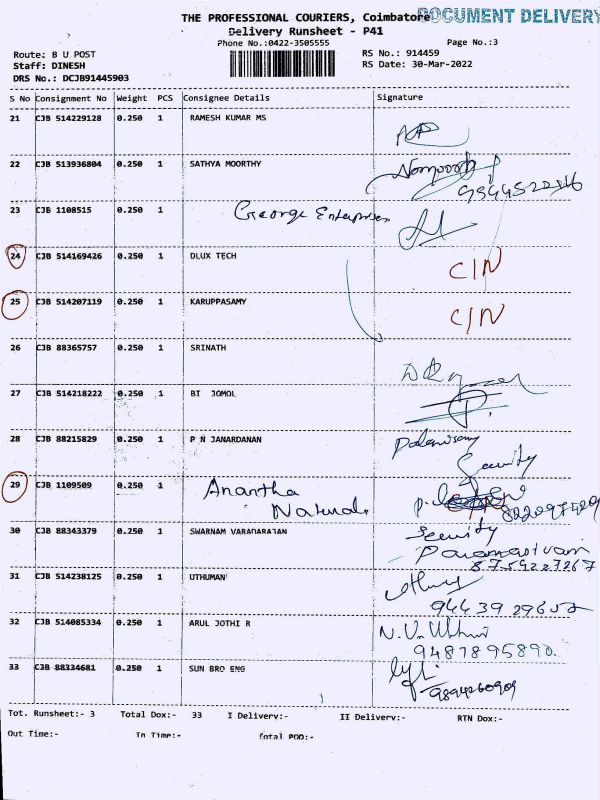 THE PROFESSIONAL COURIERS, Coimbatore DOCUMENT DELIVERY
Delivery Runsheet - P41
Phone No.:0422-3505555 Page No.:3
Route: B U POST RS No.: 914459
Staff: DINESH RS Date: 30-Mar-2022
DRS No.: DCJB91445903
S No Consignment No Weight PCS Consignee Details Signature
21 CJB 514229128 0.250 1 RAMESH KUMAR MS
22 CJB 513936804 0.250 1 SATHYA MOORTHY
23 CJB 1108515 0.250 1 George Enterprises
24 CJB 514169426 0.250 1 DLUX TECH C/N
25 CJB 514207119 0.250 1 KARUPPASAMY C/N
26 CJB 88365757 0.250 1 SRINATH
27 CJB 514218222 0.250 1 BI JOMOL
28 CJB 88215829 0.250 1 P N JANARDANAN Palanisamy
Security
29 CJB 1109509 0.250 1 Anantha
Naturals
30 CJB 88343379 0.250 1 SWARNAM VARADARAJAN Security
Paramasivam
8754227267
31 CJB 514238125 0.250 1 UTHUMAN
32 CJB 514085334 0.250 1 ARUL JOTHI R
9487895890
33 CJB 88334681 0.250 1 SUN BRO ENG
9894260909
Tot. Runsheet:- 3 Total Dox:- 33 I Delivery:- II Delivery:- RTN Dox:-
Out Time:- In Time:- Total POD:-